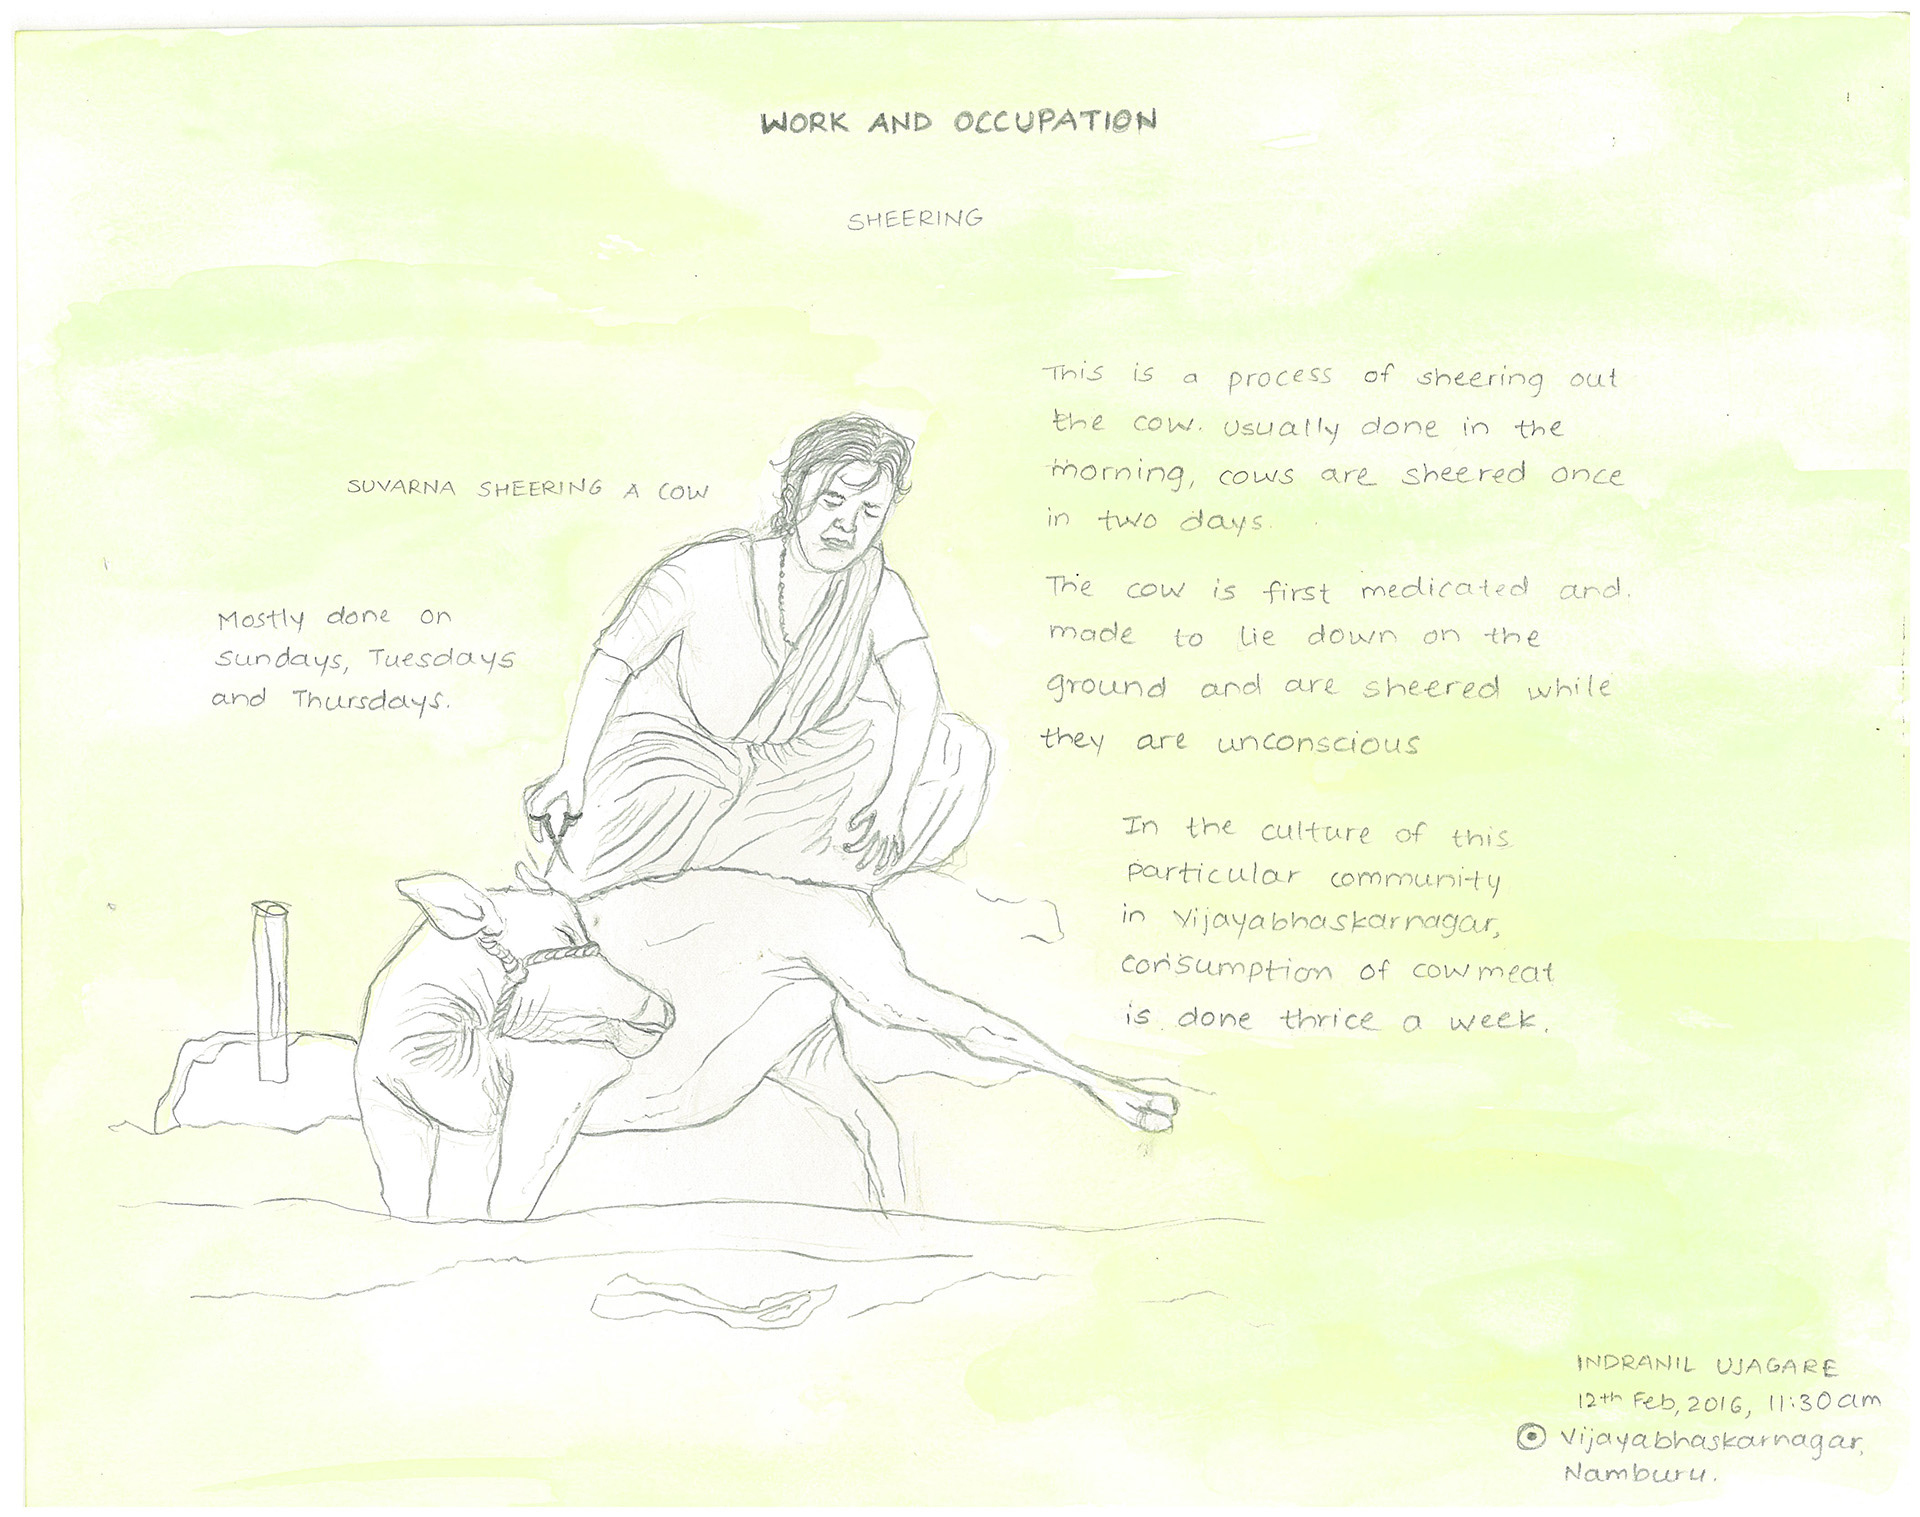 WORK AND OCCUPATION
SHEERING
SUVARNA SHEERING A COW
Mostly done on
Sundays, Tuesdays
and Thursdays.
This is a process of sheering out
the cow. Usually done in the
morning, cows are sheered once
in two days.
The cow is first medicated and.
made to lie down on the
ground and are sheered while
they are unconscious
In the culture of this
particular community
in Vijayabhaskarnagar,
consumption of cowmeat
is done thrice a week.
INDRANIL UJAGARE
12th Feb, 2016, 11:30am
Vijayabhaskarnagar,
Namburu.